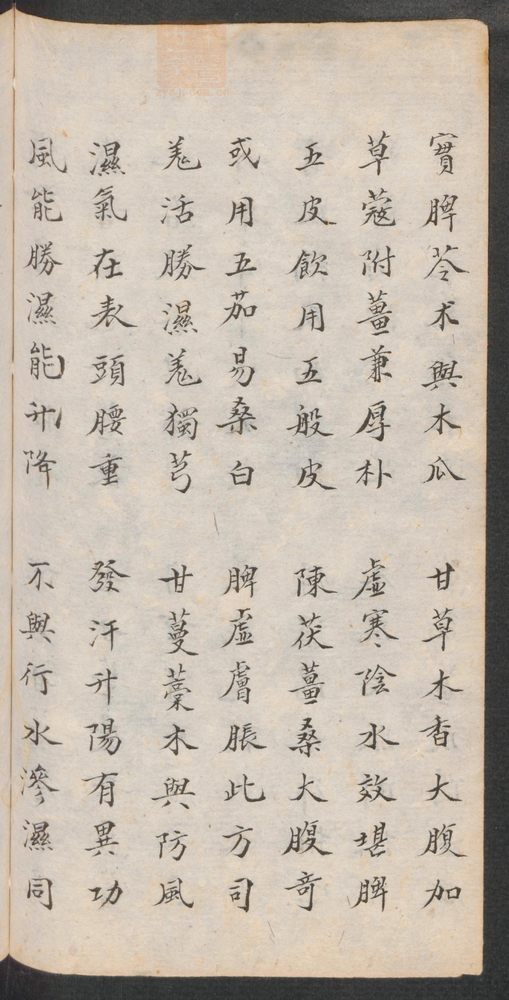 實脾苓朮與木瓜 甘草木香大腹加
草蔻附薑兼厚朴 虛寒陰水效堪脾
五皮飲用五般皮 陳茯薑桑大腹奇
或用五茄易桑白 脾虛膚脹此方司
羗活勝濕羗獨芎 甘蔓藁木與防風
濕氣在表頭腰重 發汗升陽有異功
風能勝濕能升降 不與行水滲濕同